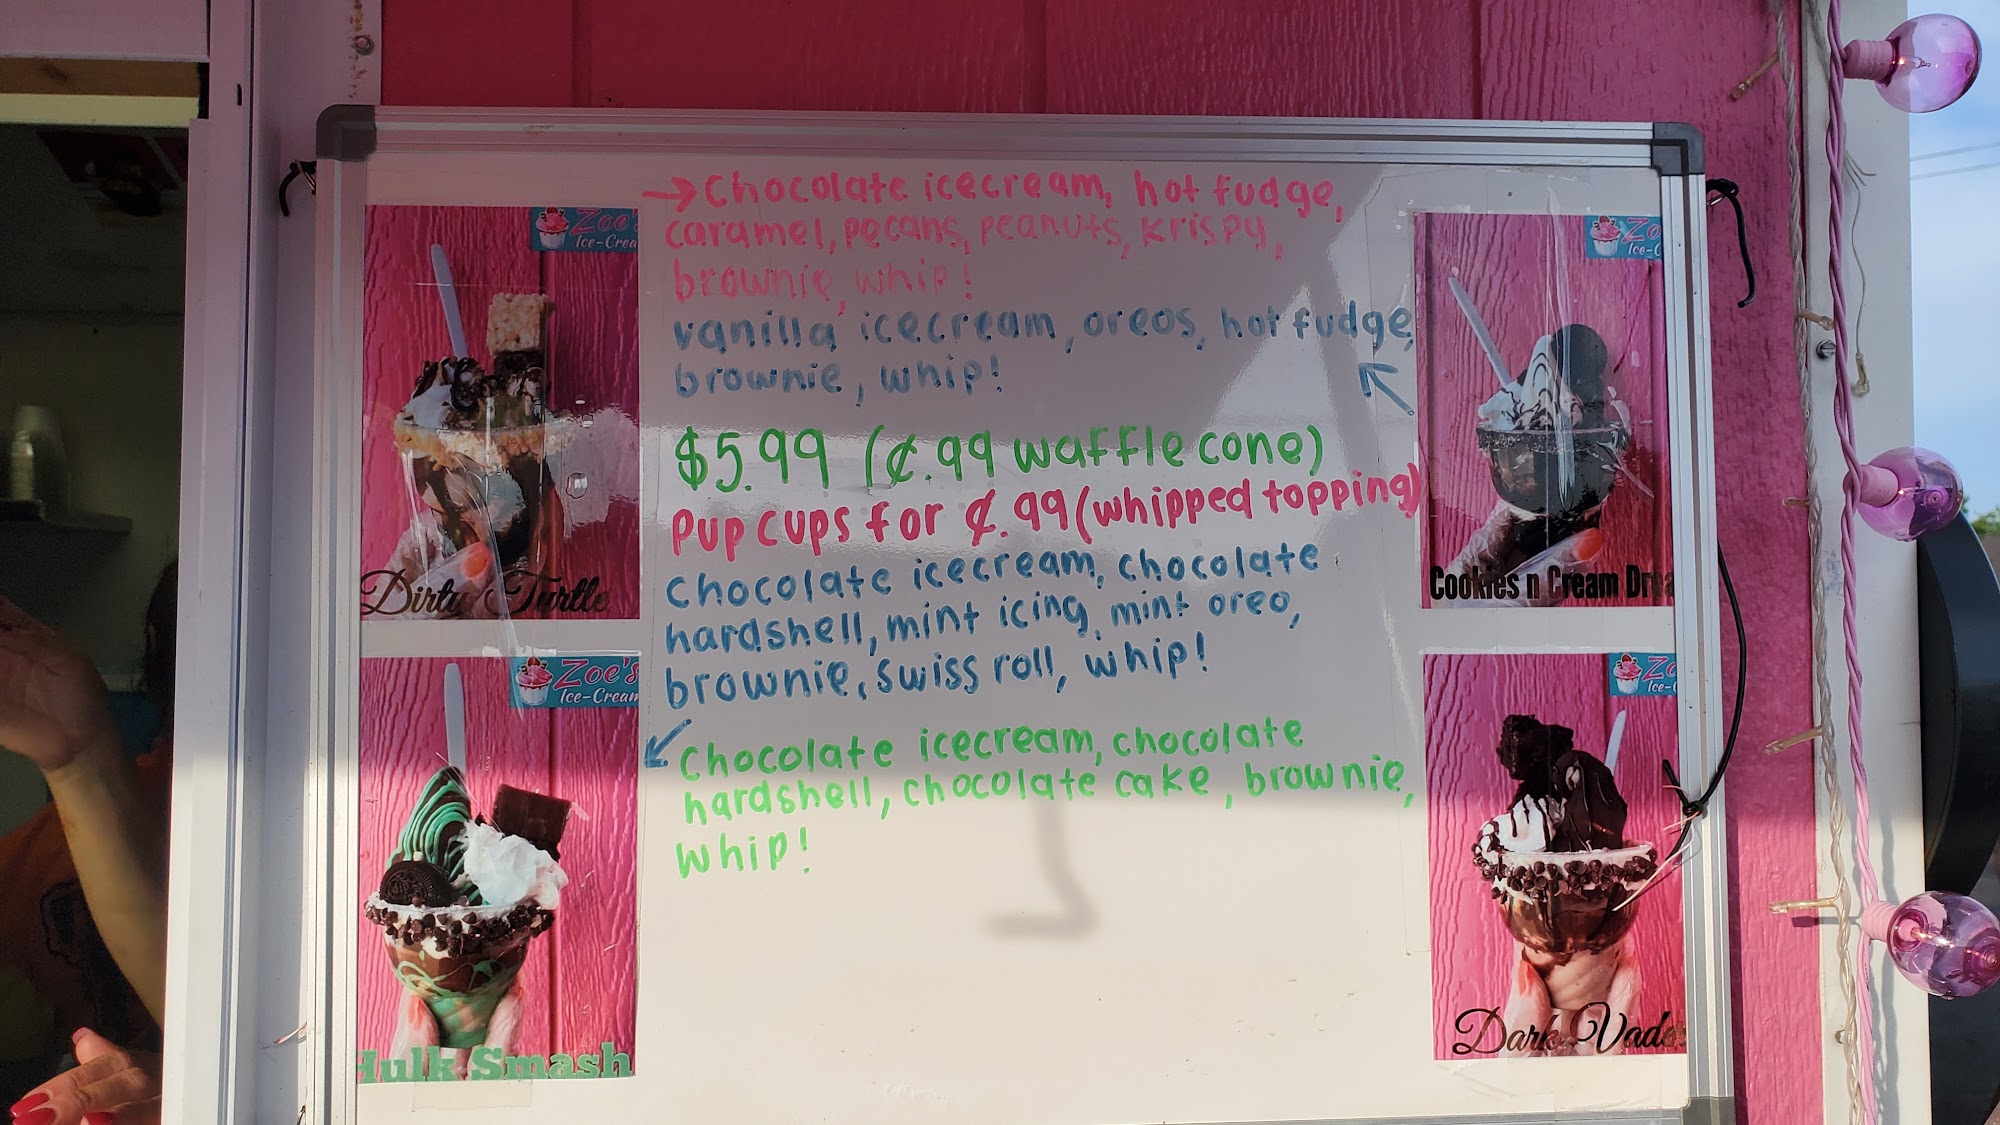 →Chocolate icecream, hot fudge,
caramel, pecans, peanuts, krispy,
brownie, whip!
vanilla icecream, oreos, hot fudge,
brownie, whip!
$5.99 (¢.99 waffle cone)
pup cups for ¢.99 (whipped topping)
chocolate icecream, chocolate
hardshell, mint icing, mint oreo,
brownie, swiss roll, whip!
chocolate icecream, chocolate
hardshell, chocolate cake, brownie,
whip!
Zoe's
Ice-Crea
Dirty Turtle
Zo
Ice-C
Cookies n Cream Drea
Zoe's
Ice-Cream
Hulk Smash
Zo
Ice-C
Dark Vader